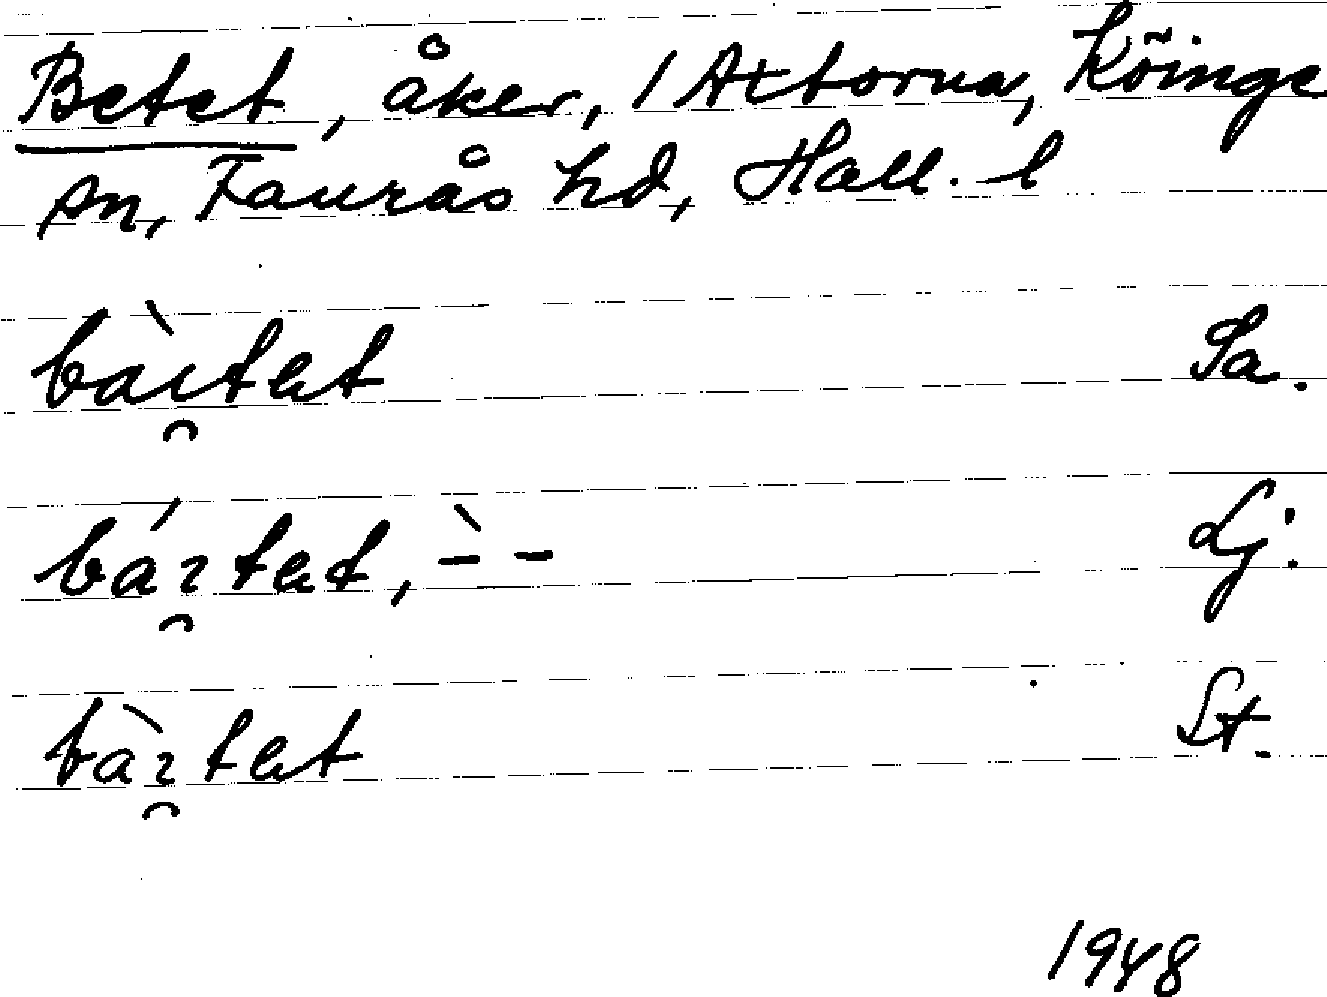 Betet, åker, 1 Attorna, Köinge
sn, Faurås hd, Hall. l
bàıtet Sa.
báɿtet, -̀ - Lj.
bàɿtet St.
1948